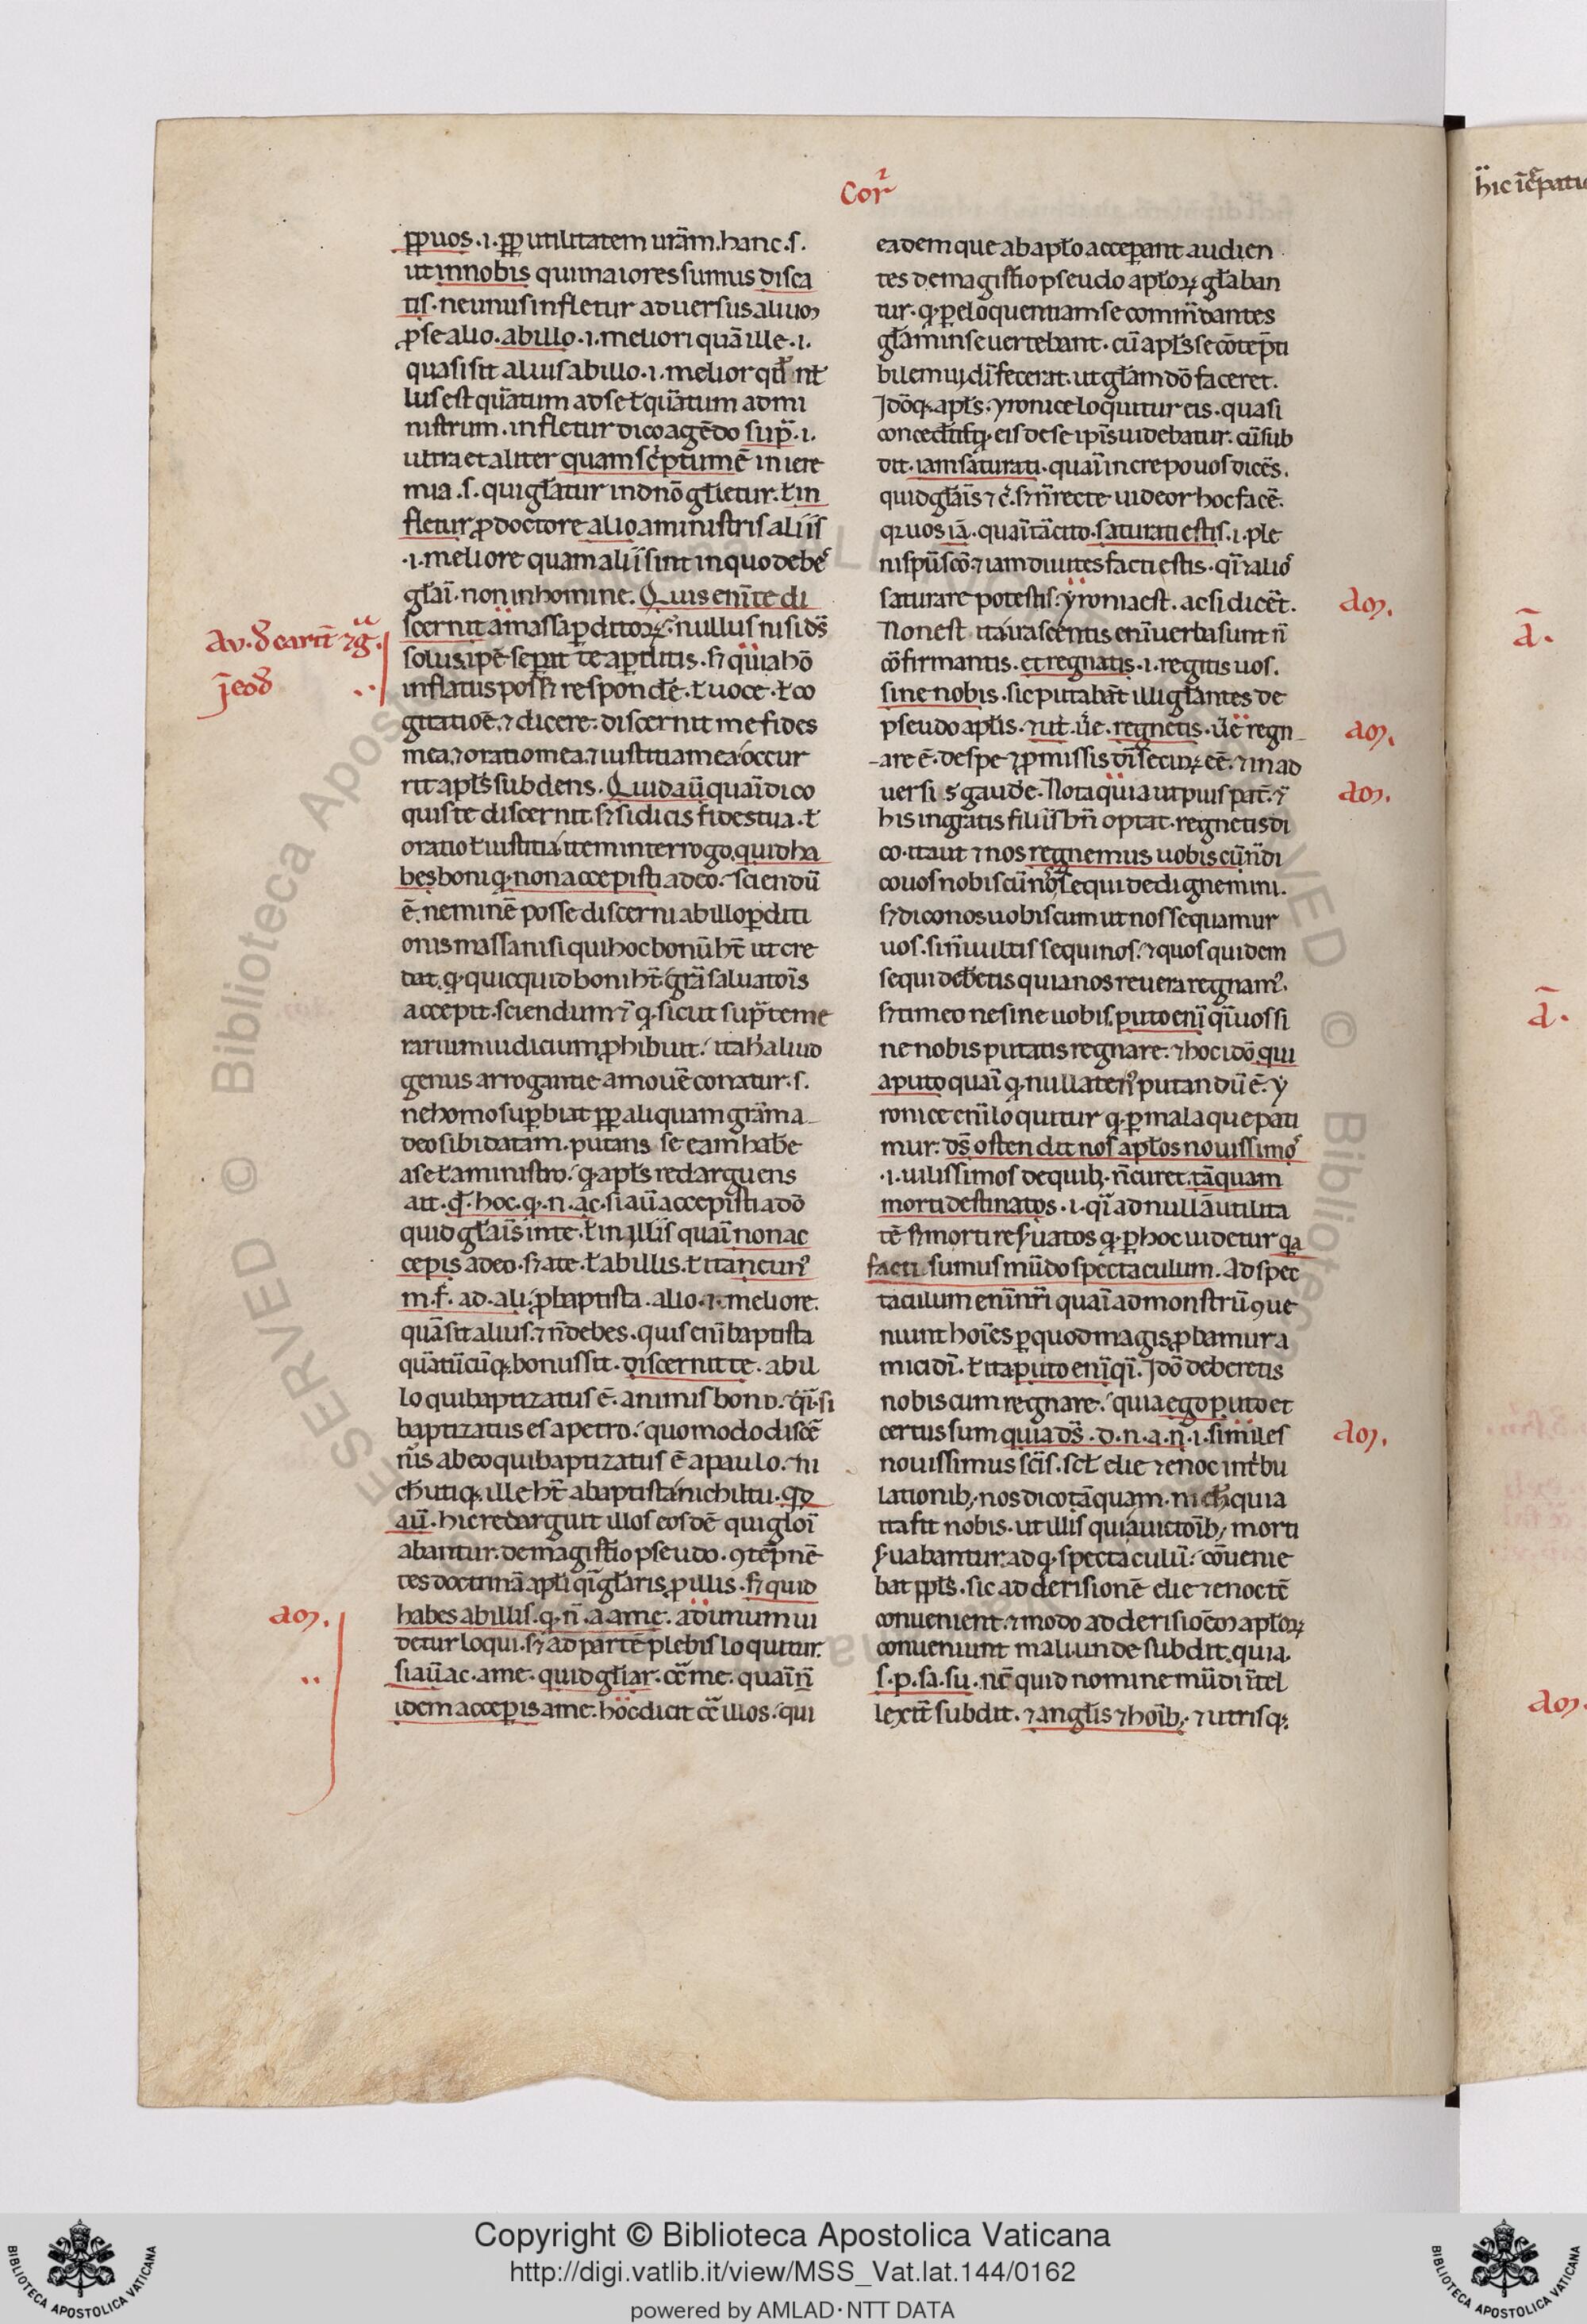 Cor̄
ꝓpuos .i. ꝓp utilitatem ur̄am. hanc .s.
ut in nobis qui maiores sumus disca
tis. ne unus infletur aduersus aliuꝫ
ꝓ se alio. ab illo .i. meliori quā ille .i.
quasi sit alius ab illo .i. melior
lus est qūatum ad se ł qūatum ad mi
nistrum. infletur dico agēdo sup̄ .i.
ultra et aliter quam sc̄ptum ē in iere
mia .s. qui gl̄atur in dn̄o gl̄ietur. ł in
fletur ꝓ doctore alio a ministris aliis
.i. meliore quam alii sint in quo debēt
gl̄ai. non in homine. Quis enī te di
scernit a massa ꝑditoꝝ. nullus nisi ds̄
solus ip̄e sep̄it te a ꝑditis. sꝫ quia hō
inflatus posset respondē. ł uoce. ł co
gitatioē. ⁊ dicere. discernit me fides
mea. ⁊ oratio mea. ⁊ iustitia mea. occur
rit apl̄s subdens. Quid aū quaī dico
quis te discernit. sꝫ si dicis fides tua. ł
oratio ł iustitia. item interrogo. quid ha
bes boni ꝙ non accepisti a deo. sciendū
ē. neminē posse discerni ab illo ꝑditi
onis massa nisi qui hoc bonū hт̄ ut cre
dat. ꝙ quicquid boni hт̄ grā saluatoīs
accepit. sciendum ē ꝙ sicut sup̄ teme
rarium iudicium ꝓhibuit. ita h̄ aliud
genus arrogantie amouē conatur .s.
ne homo sup̄biat ꝓp aliquam grām a
deo sibi datam. putans se eam habē
a se ł a ministro. ꝙ apl̄s redarguens
ait. q̄. hoc. ꝙ. n. ac. si aū accepisti a dō
quid gl̄aīs in te. ł in illis quaī non ac
cepis a deo. sꝫ a te. ł ab illis. ł ita ne un᷒
m. f. ad. ali. ꝓ baptista. alio .i. meliore.
quā sit alius. ⁊ n̄ debes. quis enī baptista
qūatūcūqꝫ bonus sit. discernit te. ab il
lo qui baptizatus ē. a nimis bono. q̄i. si
baptizatus es a petro. quomodo discē
nis̄ ab eo qui baptizatus ē a paulo.
ch̄ utiqꝫ. ille hт̄ a baptista. nichil tu. qd
aū. hic redarguit illos eosdē qui gloī
abantur. de magistꝛio pseudo. ꝯtēpnē
tes doctrinā apl̄i. qi gl̄aris ꝓ illis. sꝫ quid
habes ab illis. ꝙ. n̄. a. a me. ad unum ui
detur loqui. sꝫ ad partē plebis loquitur.
si aū ac. a me. quid gl̄iar. cē me. quaī n̄
idem accepis a me. hoc dicit cē illos. qui
eadem que ab apl̄o acceperant audien
tes de magistꝛio pseudo apl̄oꝝ gl̄aban
tur. ꝙ ꝑ eloquentiam se commēdantes
gl̄am in se uertebant. cū apl̄s se cōtēpti
bilem iudī fecerat. ut gl̄am dō faceret.
Idōqꝫ apl̄s. yronice loquitur eis. quasi
concedat ꝙ eis de se ip̄is uidebatur. cū sub
dit. iam saturati. quaī increpo uos dicēs.
quid gl̄aīs ⁊ c̄. sꝫ n̄ recte uideor hoc facē.
qꝛ uos iā. quaī tācito. saturati estis .i. ple
ni spū scō. ⁊ iam diuites facti estis. q̄i ⁊ alios
saturare potestis. yronia est. ac si dicēt.
Non est ita. irascentis enī uerba sunt n̄
cōfirmantis. et regnatis .i. regitis uos.
sine nobis. sic putabāt illi gl̄antes de
pseudo apl̄is. ⁊ ut. ūe. regnetis. ūe regn
are ē. de spe ⁊ ꝓmissis dī securꝫ eē. ⁊ in ad
uersis gaudē. Nota quia ut pius pat̄. ⁊
his ingratis filiis bn̄ optat. regnetis di
co. ita ut ⁊ nos regnemus uobiscū. n̄ di
co uos nobiscū nob̄ sequi dedignemini.
sꝫ dico nos uobiscum ut nos sequamur
uos. si n̄ uultis sequi nos. ⁊ quos quidem
sequi debetis quia nos reuera regnam᷒.
sꝫ timeo ne sine uobis. puto enī q̄ uos si
ne nobis putatis regnare. ⁊ hoc idō qui
a puto quaī ꝙ nullaten᷒ putandū ē. y
ronice enī loquitur ꝙ ꝑ mala que pati
mur. ds̄ ostendit nos apl̄os nouissimos
.i. uilissimos de quibꝫ. n̄ curet. tāquam
morti destinatos .i. q̄i ad nullā utilita
tē sꝫ morti res̄uatos ꝙ ꝑ hoc uidetur qꝛ
facti sumus mūdo spectaculum. Ad spec
taculum enī nr̄i quaī ad monstrū ꝯue
niunt hoīes ꝑ quod magis ꝓbamur a
mici dī. ł ita puto enī qi. Idō deberetis
nobiscum regnare. quia ego puto et
certus sum quia ds̄. o. n. a. n. i. similes
nouissimus scīs. scł elie ⁊ enoc in tⁱbu
lationibꝫ. nos dico tāquam. m ch̄ quia
ita fit nobis. ut illis qui a uictoībꝫ morti
s̄uabantur. ad ꝙ spectaculū. cōuenie
bat ppl̄s. sic ad derisionē elie ⁊ enoc tē
conuenient. ⁊ modo ad derisioēꝫ apl̄oꝝ
conueniunt mali. unde subdit. quia.
s. p. sa. su. nē quid nomine mūdi īntel
lexeīt subdit. ⁊ angl̄is ⁊ hoībꝫ. ⁊ utrisqꝫ
aꝫ.
aꝫ.
aꝫ.
aꝫ.
aꝫ.
ā.
ā.
Copyright © Biblioteca Apostolica Vaticana
http://digi.vatlib.it/view/MSS_Vat.lat.144/0162
powered by AMLAD·NTT DATA
BIBLIOTECA APOSTOLICA VATICANA
BIBLIOTECA APOSTOLICA VATICANA